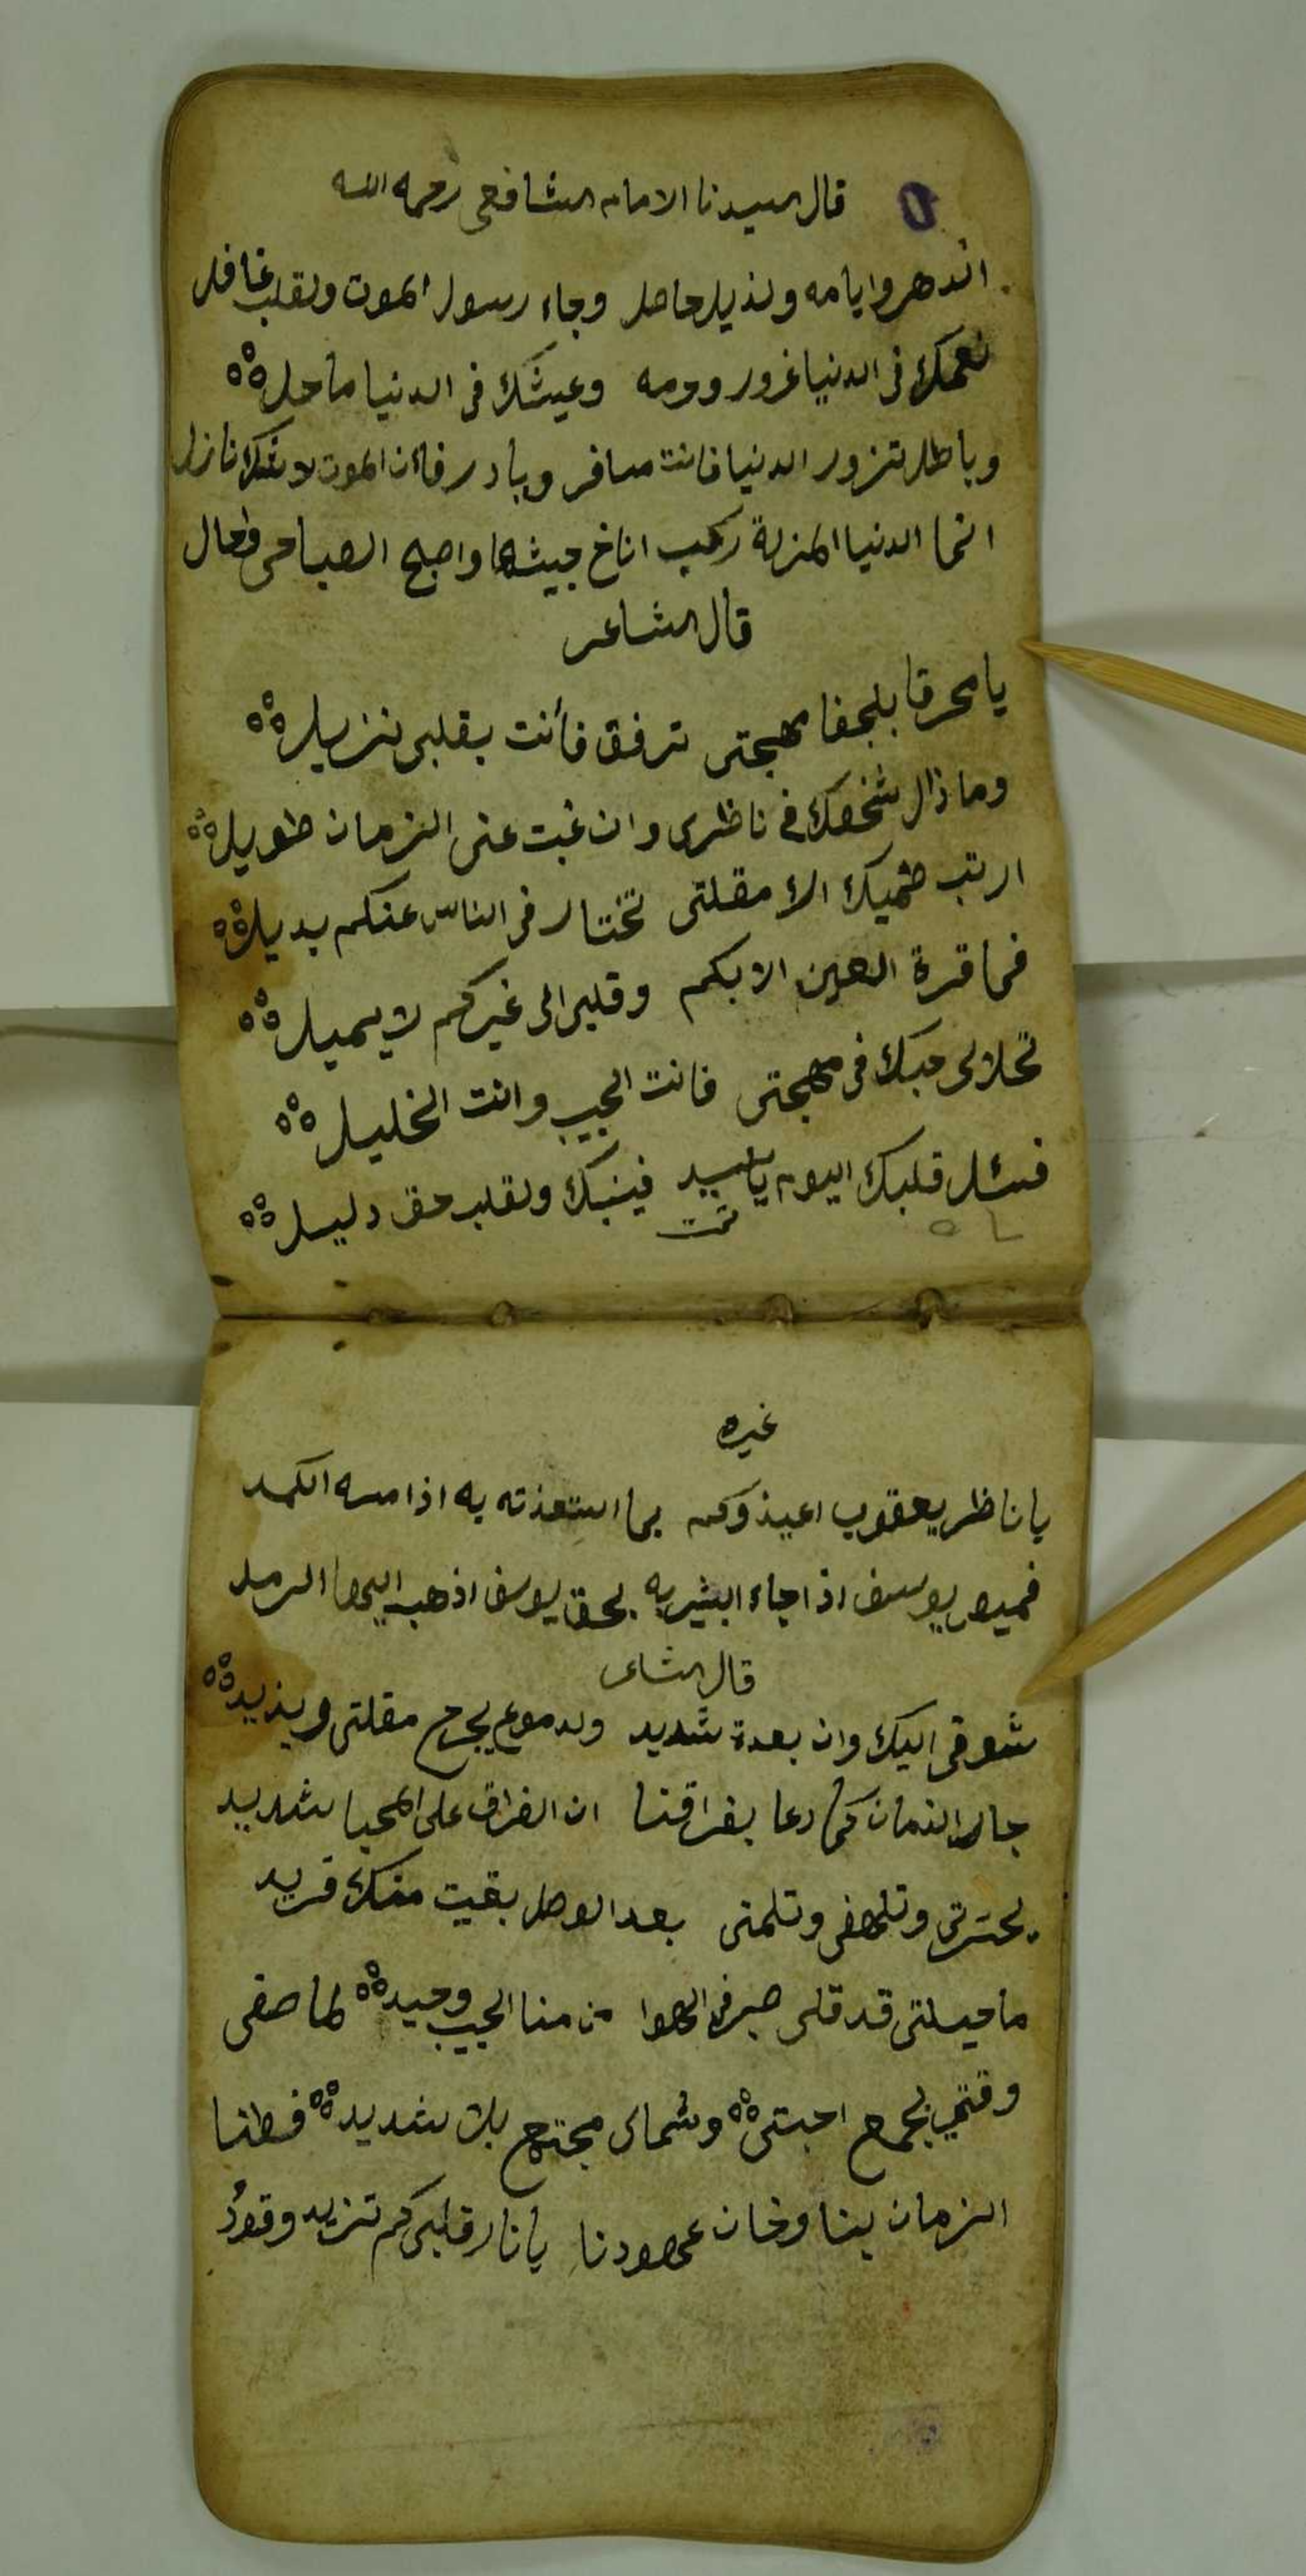 قال سيدنا الامام الشافعي رحمه الله
اندهر وايامه ولذيل حاصل وجاء رسول الموت ولقلب غافل
نعمك في الدنيا غرور وحمه وعيشك في الدنيا ماحل
وباطل تزور الدنيا فانت مسافر وبادر فاءن الموت لا شك نازل
انما الدنيا المنزلة ركب اناخ جيشها واصبح الصباحي
قال الشاعر
يا محرقا بلجفا مهجتي ترفق فأنت بقلبي نزيل
وما ذال شخصك في ناظري وان غبت عني الزمان طويل
ارتب الا مقلتي تختار في الناس عنكم بديل
فما قرة العين الا بكم وقلبي الى غيركم لا يميل
تحلا لى حبك في مهجتي فانت الحبيب وانت الخليل
فسئل قلبك اليوم يا سيد فينبك ولقلب حق دليل
تمت
غيره
يا ناظر يعقوب اعيذوكم بما استعذته به اذا مسه الكمد
قميص يوسف اذا جاء البشير به بحق يوسف اذهب ايها الرمد
قال الشاعر
شوقي اليك وان بعدة شديد ولدموع يجرح مقلتي ويذيد
جار الزمان كما دعا بفراقنا ان الفراق على المحبا شديد
بحسرتي وتلهفي وتلمني بعد الوصل بقيت منك فريد
ما حيلتي قد قلى صبر في الهوا من منا الحبيب وحيد لما صفى
وقتي بجمع احبتي وشمالى مجتمع بلا شديد فطنا
الزمان بنا وخان عهودنا يا نار قلبي كم تزيد وقود